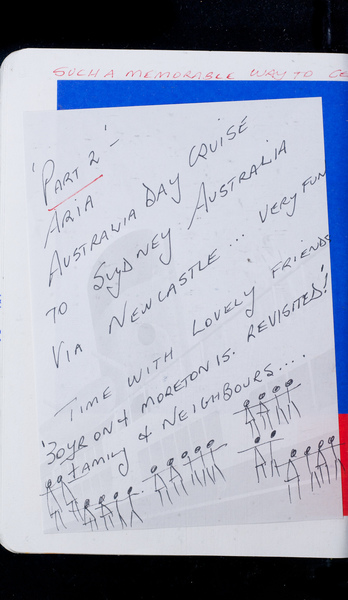 SUCH A MEMORABLE WAY TO CE
'PART 2'-
ARIA
AUSTRALIA DAY CRUISE
TO SYDNEY AUSTRALIA
VIA NEWCASTLE ... VERY FUN
TIME WITH LOVELY FRIENDS
'30YR ON & MORETON IS. REVISITED!'
FAMILY & NEIGHBOURS....